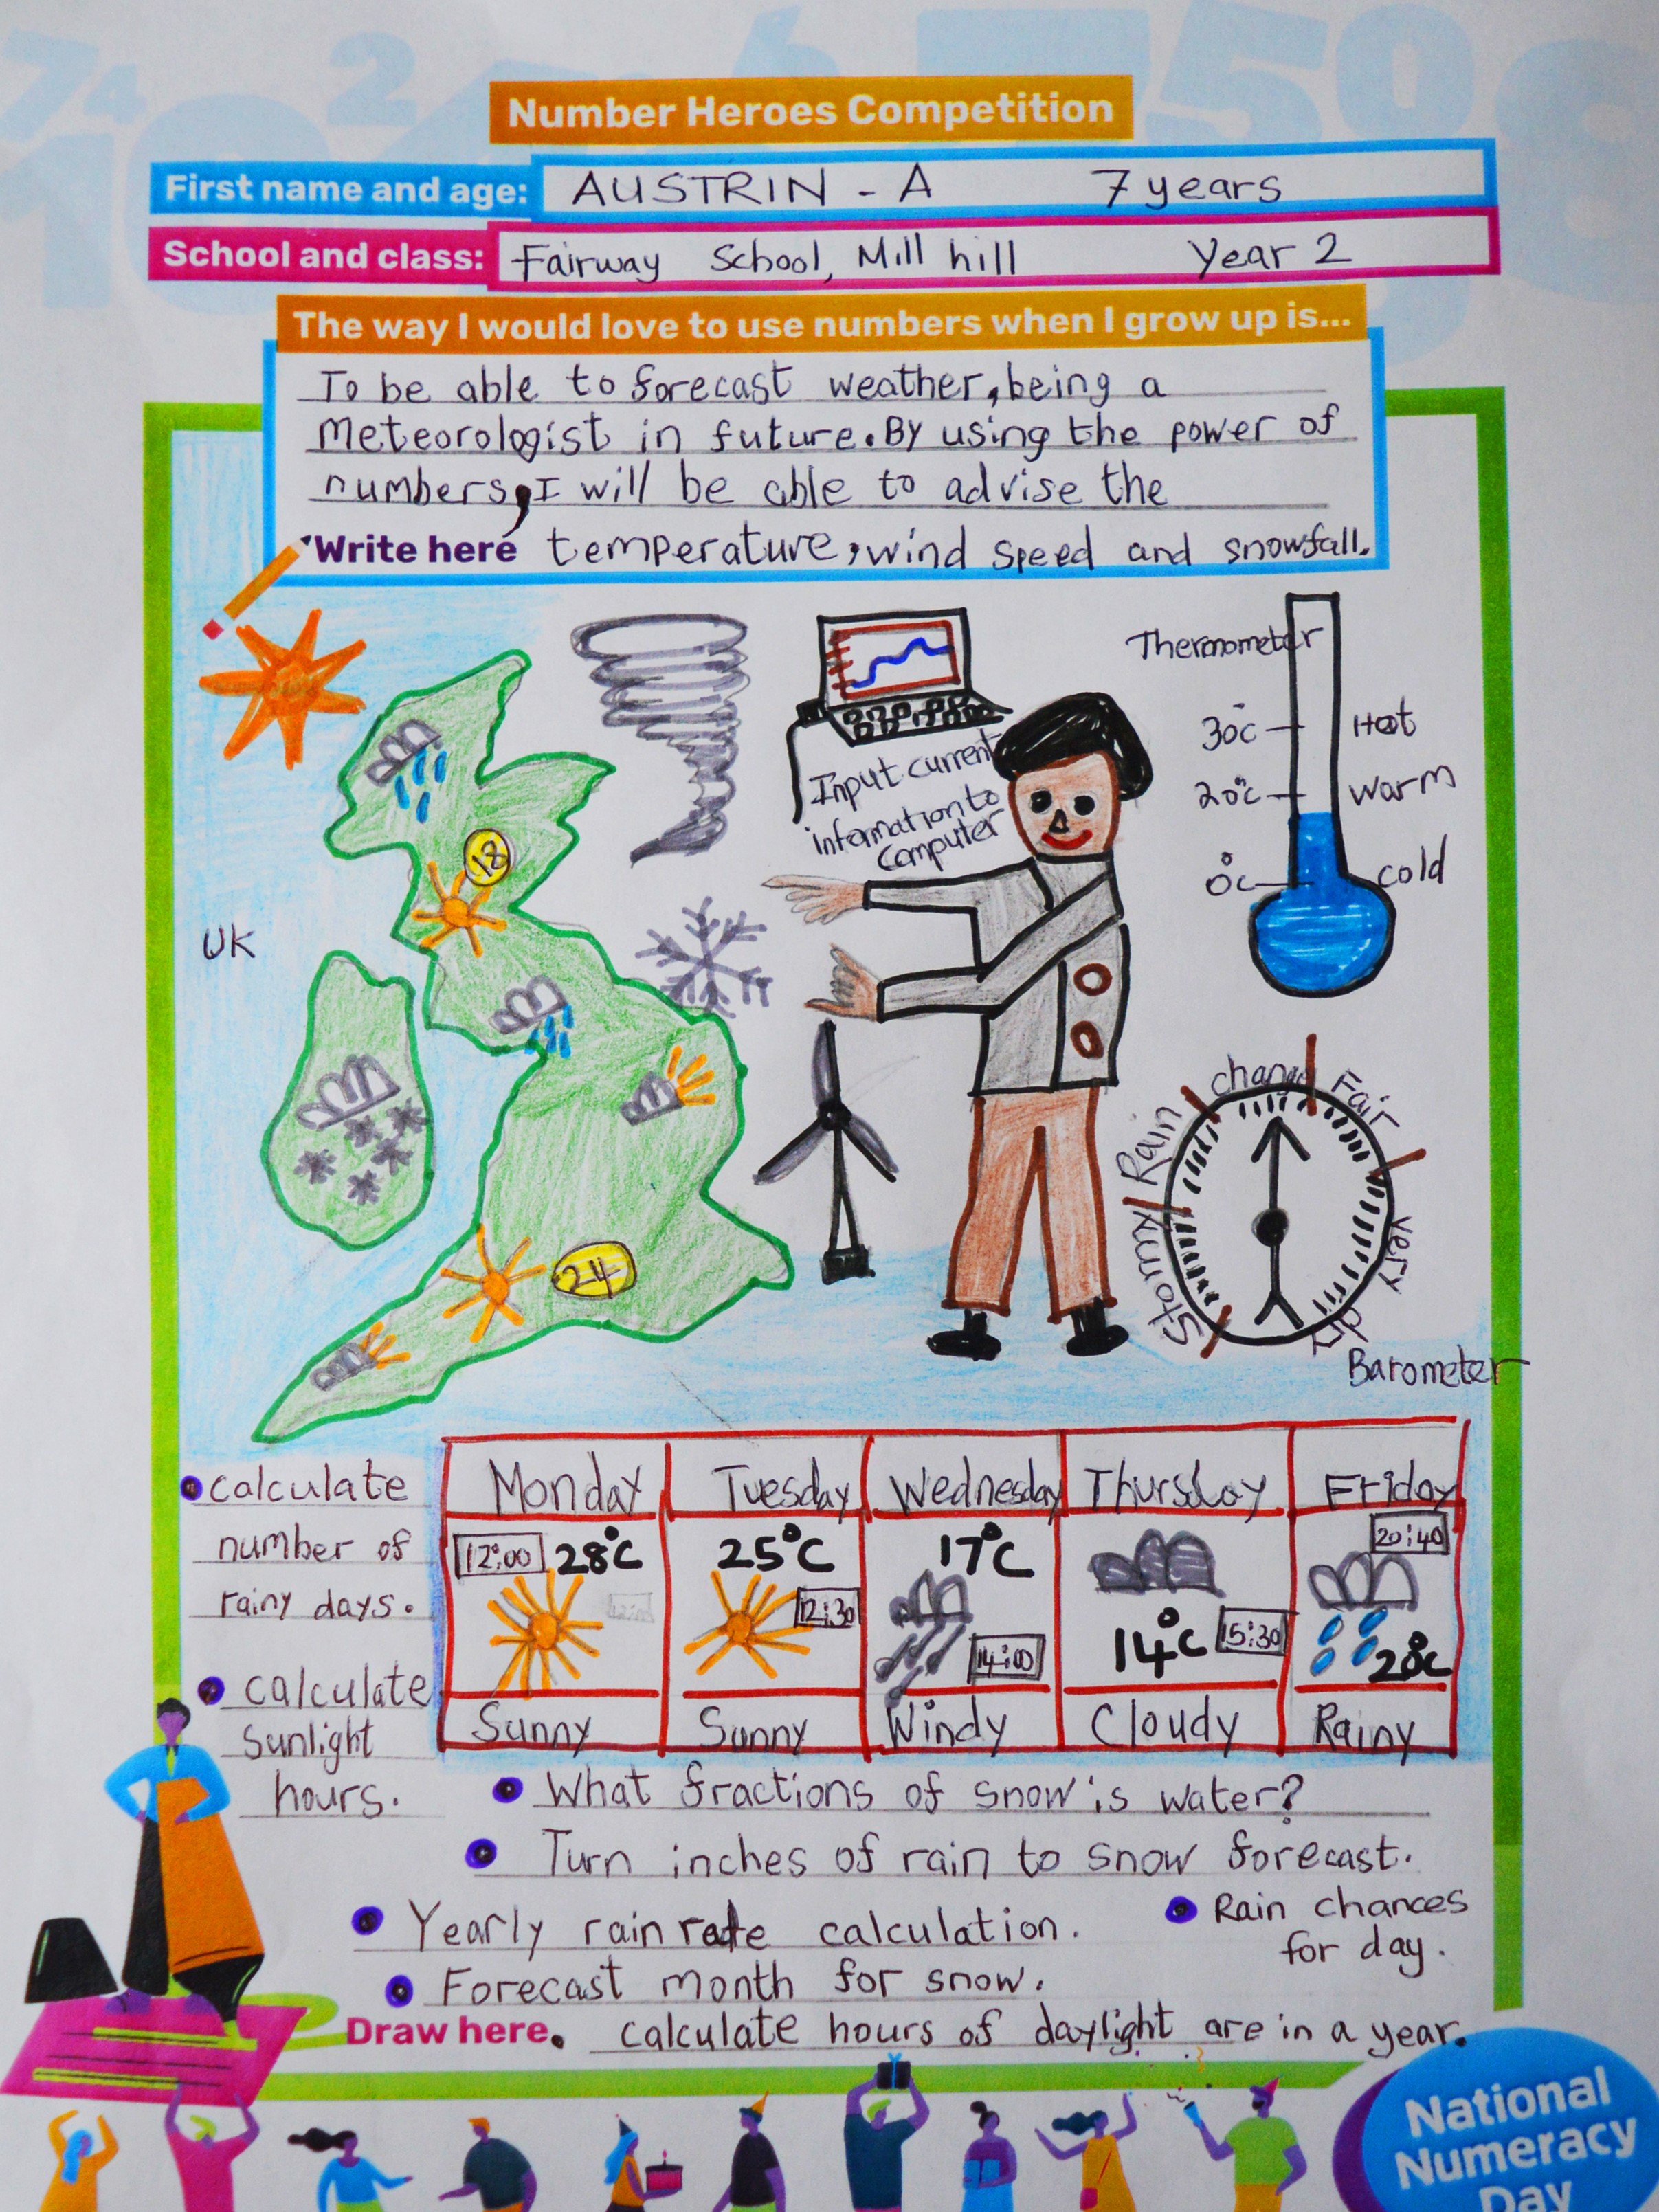 Number Heroes Competition
First name and age: AUSTRIN - A 7 years
School and class: Fairway School, Mill hill Year 2
The way I would love to use numbers when I grow up is...
To be able to forecast weather, being a
Meteorologist in future. By using the power of
numbers, I will be able to advise the
Write here temperature, wind speed and snowfall.
Thermometer
30°c Hot
20°c warm
0°c cold
Input current
information to
computer
18
UK
24
Stormy
Rain
change
Fair
very dry
Barometer
Monday Tuesday Wednesday Thursday Friday
12:00 28°C 25°C 12:30 17°C 14:00 14°C 15:30 20:40 20°C
Sunny Sunny Windy Cloudy Rainy
calculate
number of
rainy days.
calculate
Sunlight
hours.
What fractions of snow is water?
Turn inches of rain to snow forecast.
Yearly rain rate calculation.
Rain chances
for day.
Forecast month for snow.
Draw here. calculate hours of daylight are in a year.
National
Numeracy
Day